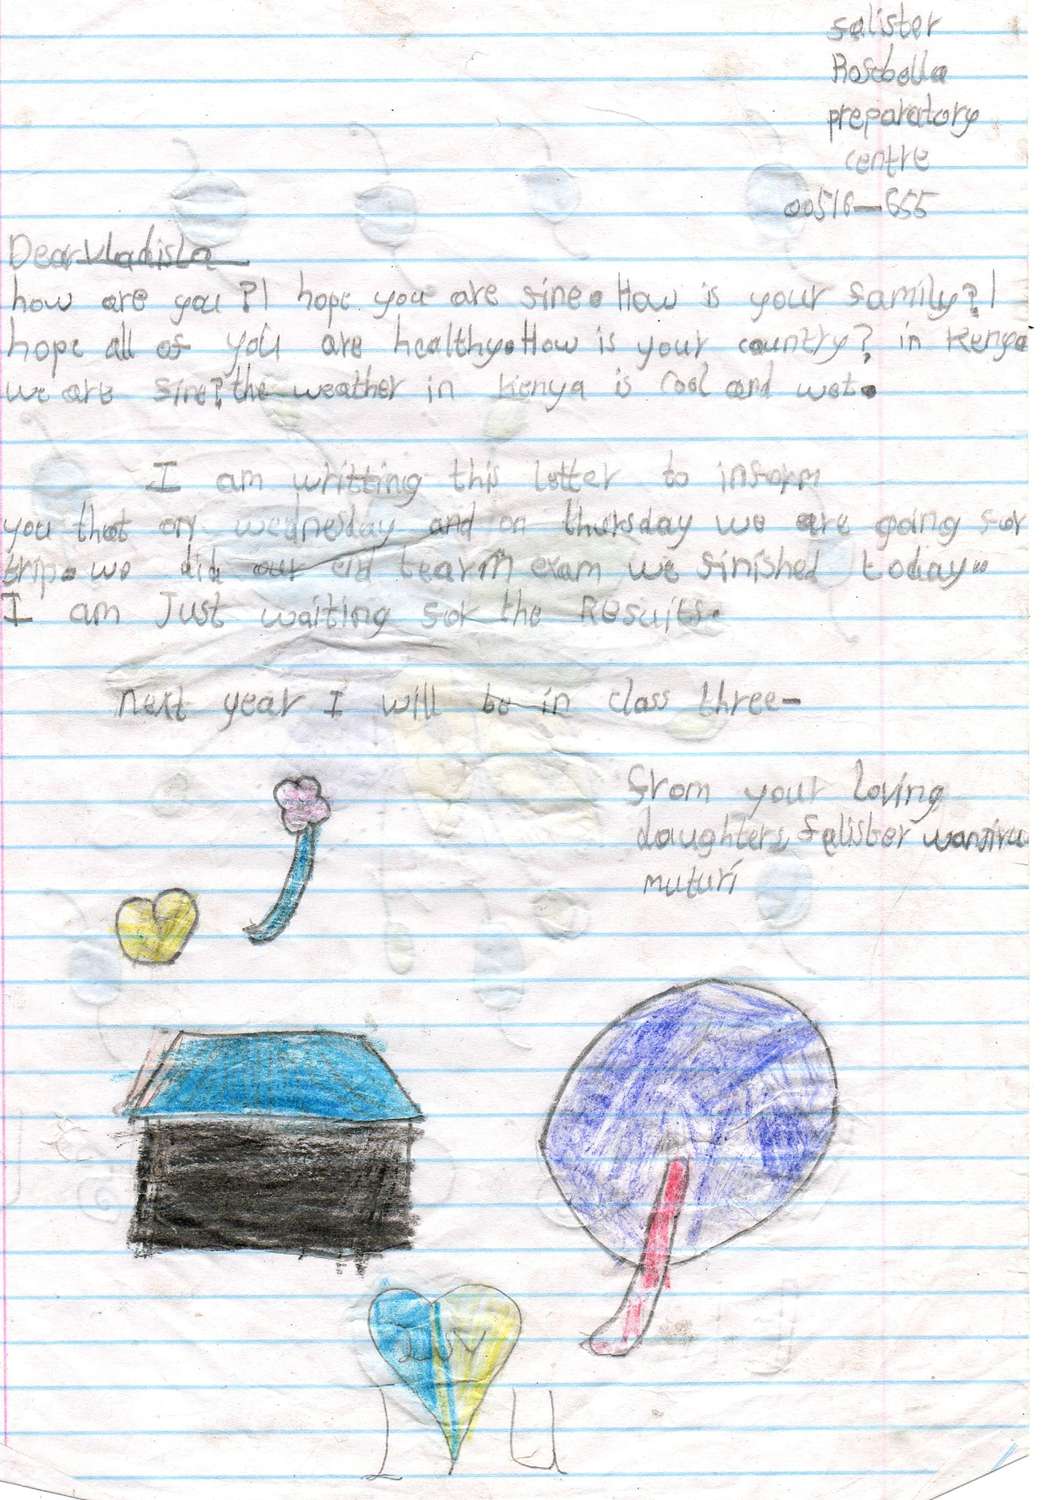 salister
Rosebella
preparatory
centre
00516-655
Dear Vladisla
how are you? I hope you are fine. How is your family? I
hope all of you are healthy. How is your country? in Kenya
we are fine? the weather in Kenya is cool and wet.
I am writting this letter to inform
you that on wednesday and on thursday we are going for
trip. we did our end tearm exam we finished today.
I am Just waiting for the Results.
next year I will be in class three-
from your loving
daughters, Salister wanjiru
muturi
I U